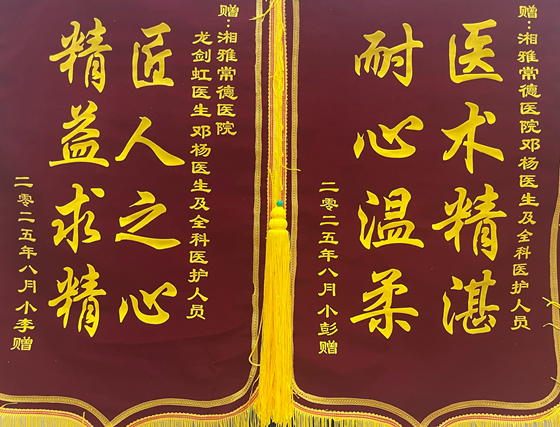 赠：湘雅常德医院邓杨医生及全科医护人员
医术精湛
耐心温柔
二零二五年八月小彭赠
赠：湘雅常德医院
龙剑虹医生邓杨医生及全科医护人员
匠人之心
精益求精
二零二五年八月小李赠